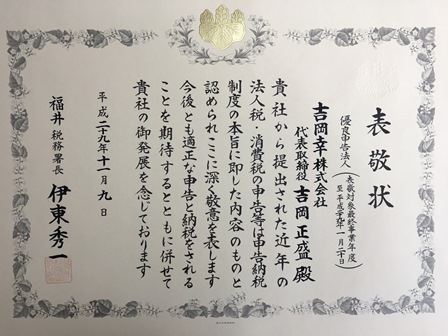 表敬状
優良申告法人
(表敬対象最終事業年度
至平成二九年一月二十日)
吉岡幸株式会社
代表取締役 吉岡正盛 殿
貴社から提出された近年の
法人税・消費税の申告等は申告納税
制度の本旨に即した内容のものと
認められここに深く敬意を表します
今後とも適正な申告と納税をされる
ことを期待するとともに併せて
貴社の御発展を念じております
平成二十九年十一月九日
福井税務署長 伊東秀一